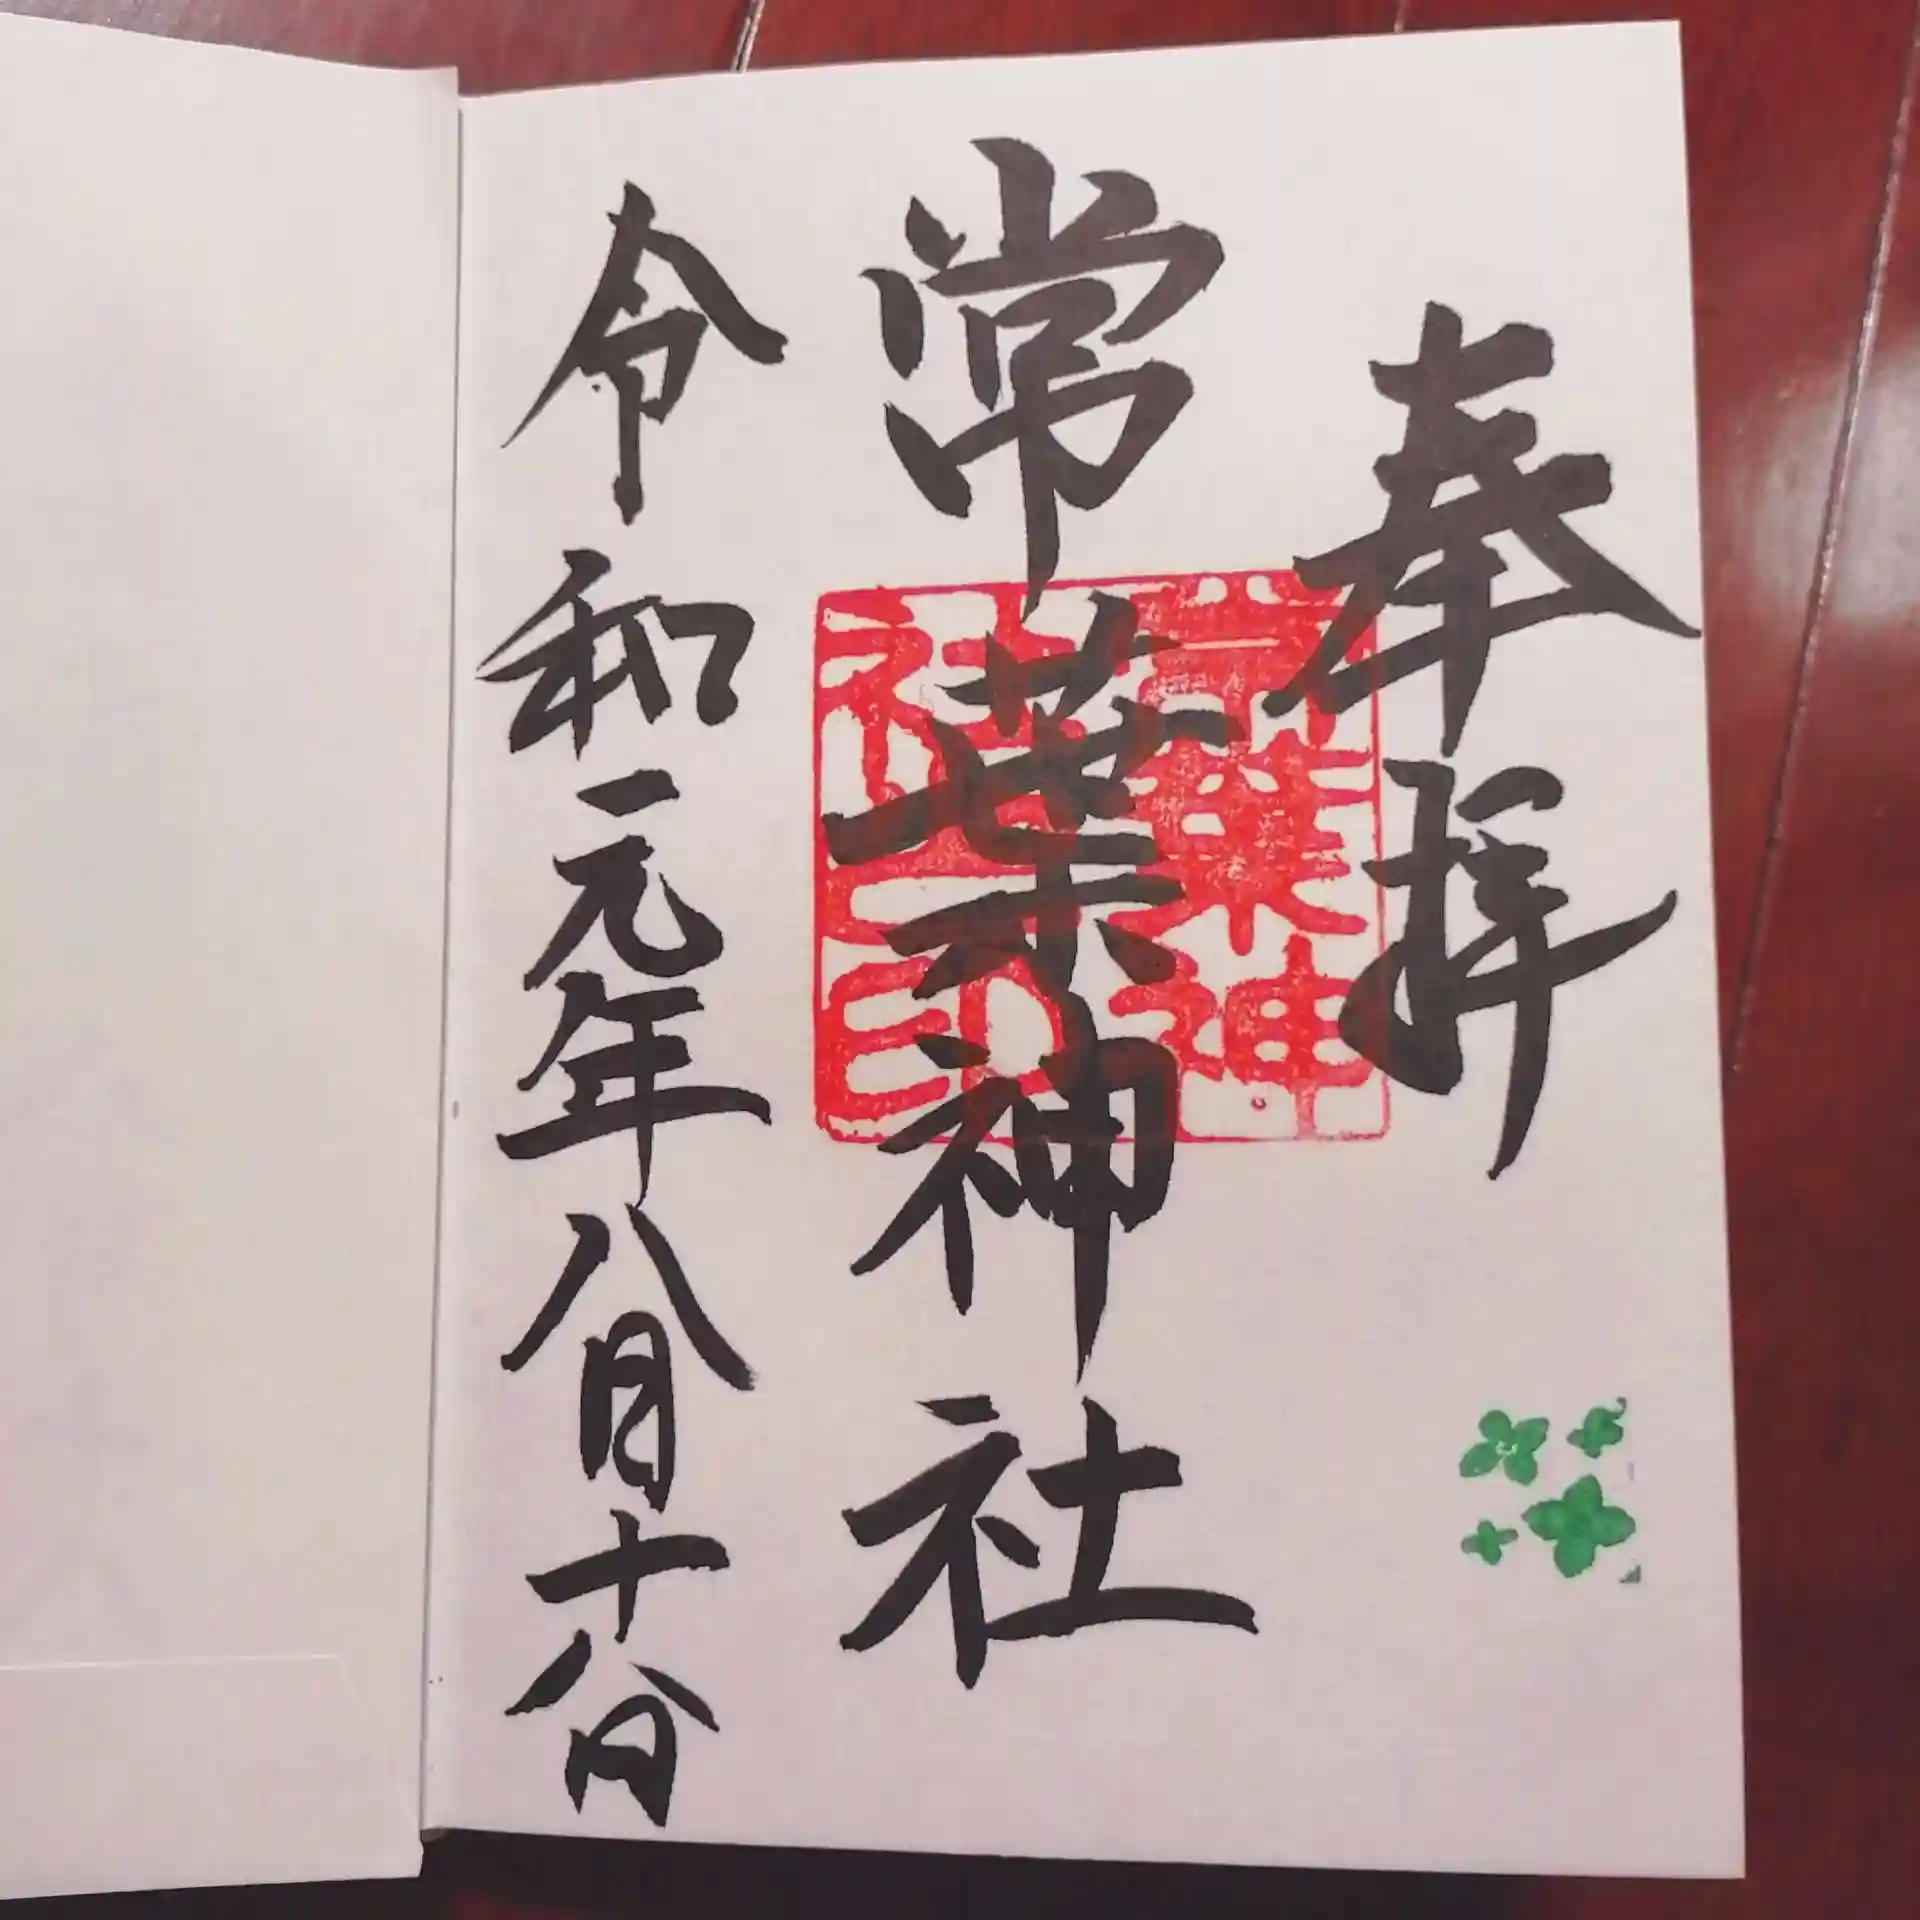 奉拝
常葉神社
常葉神
社之印
令和元年八月十八日